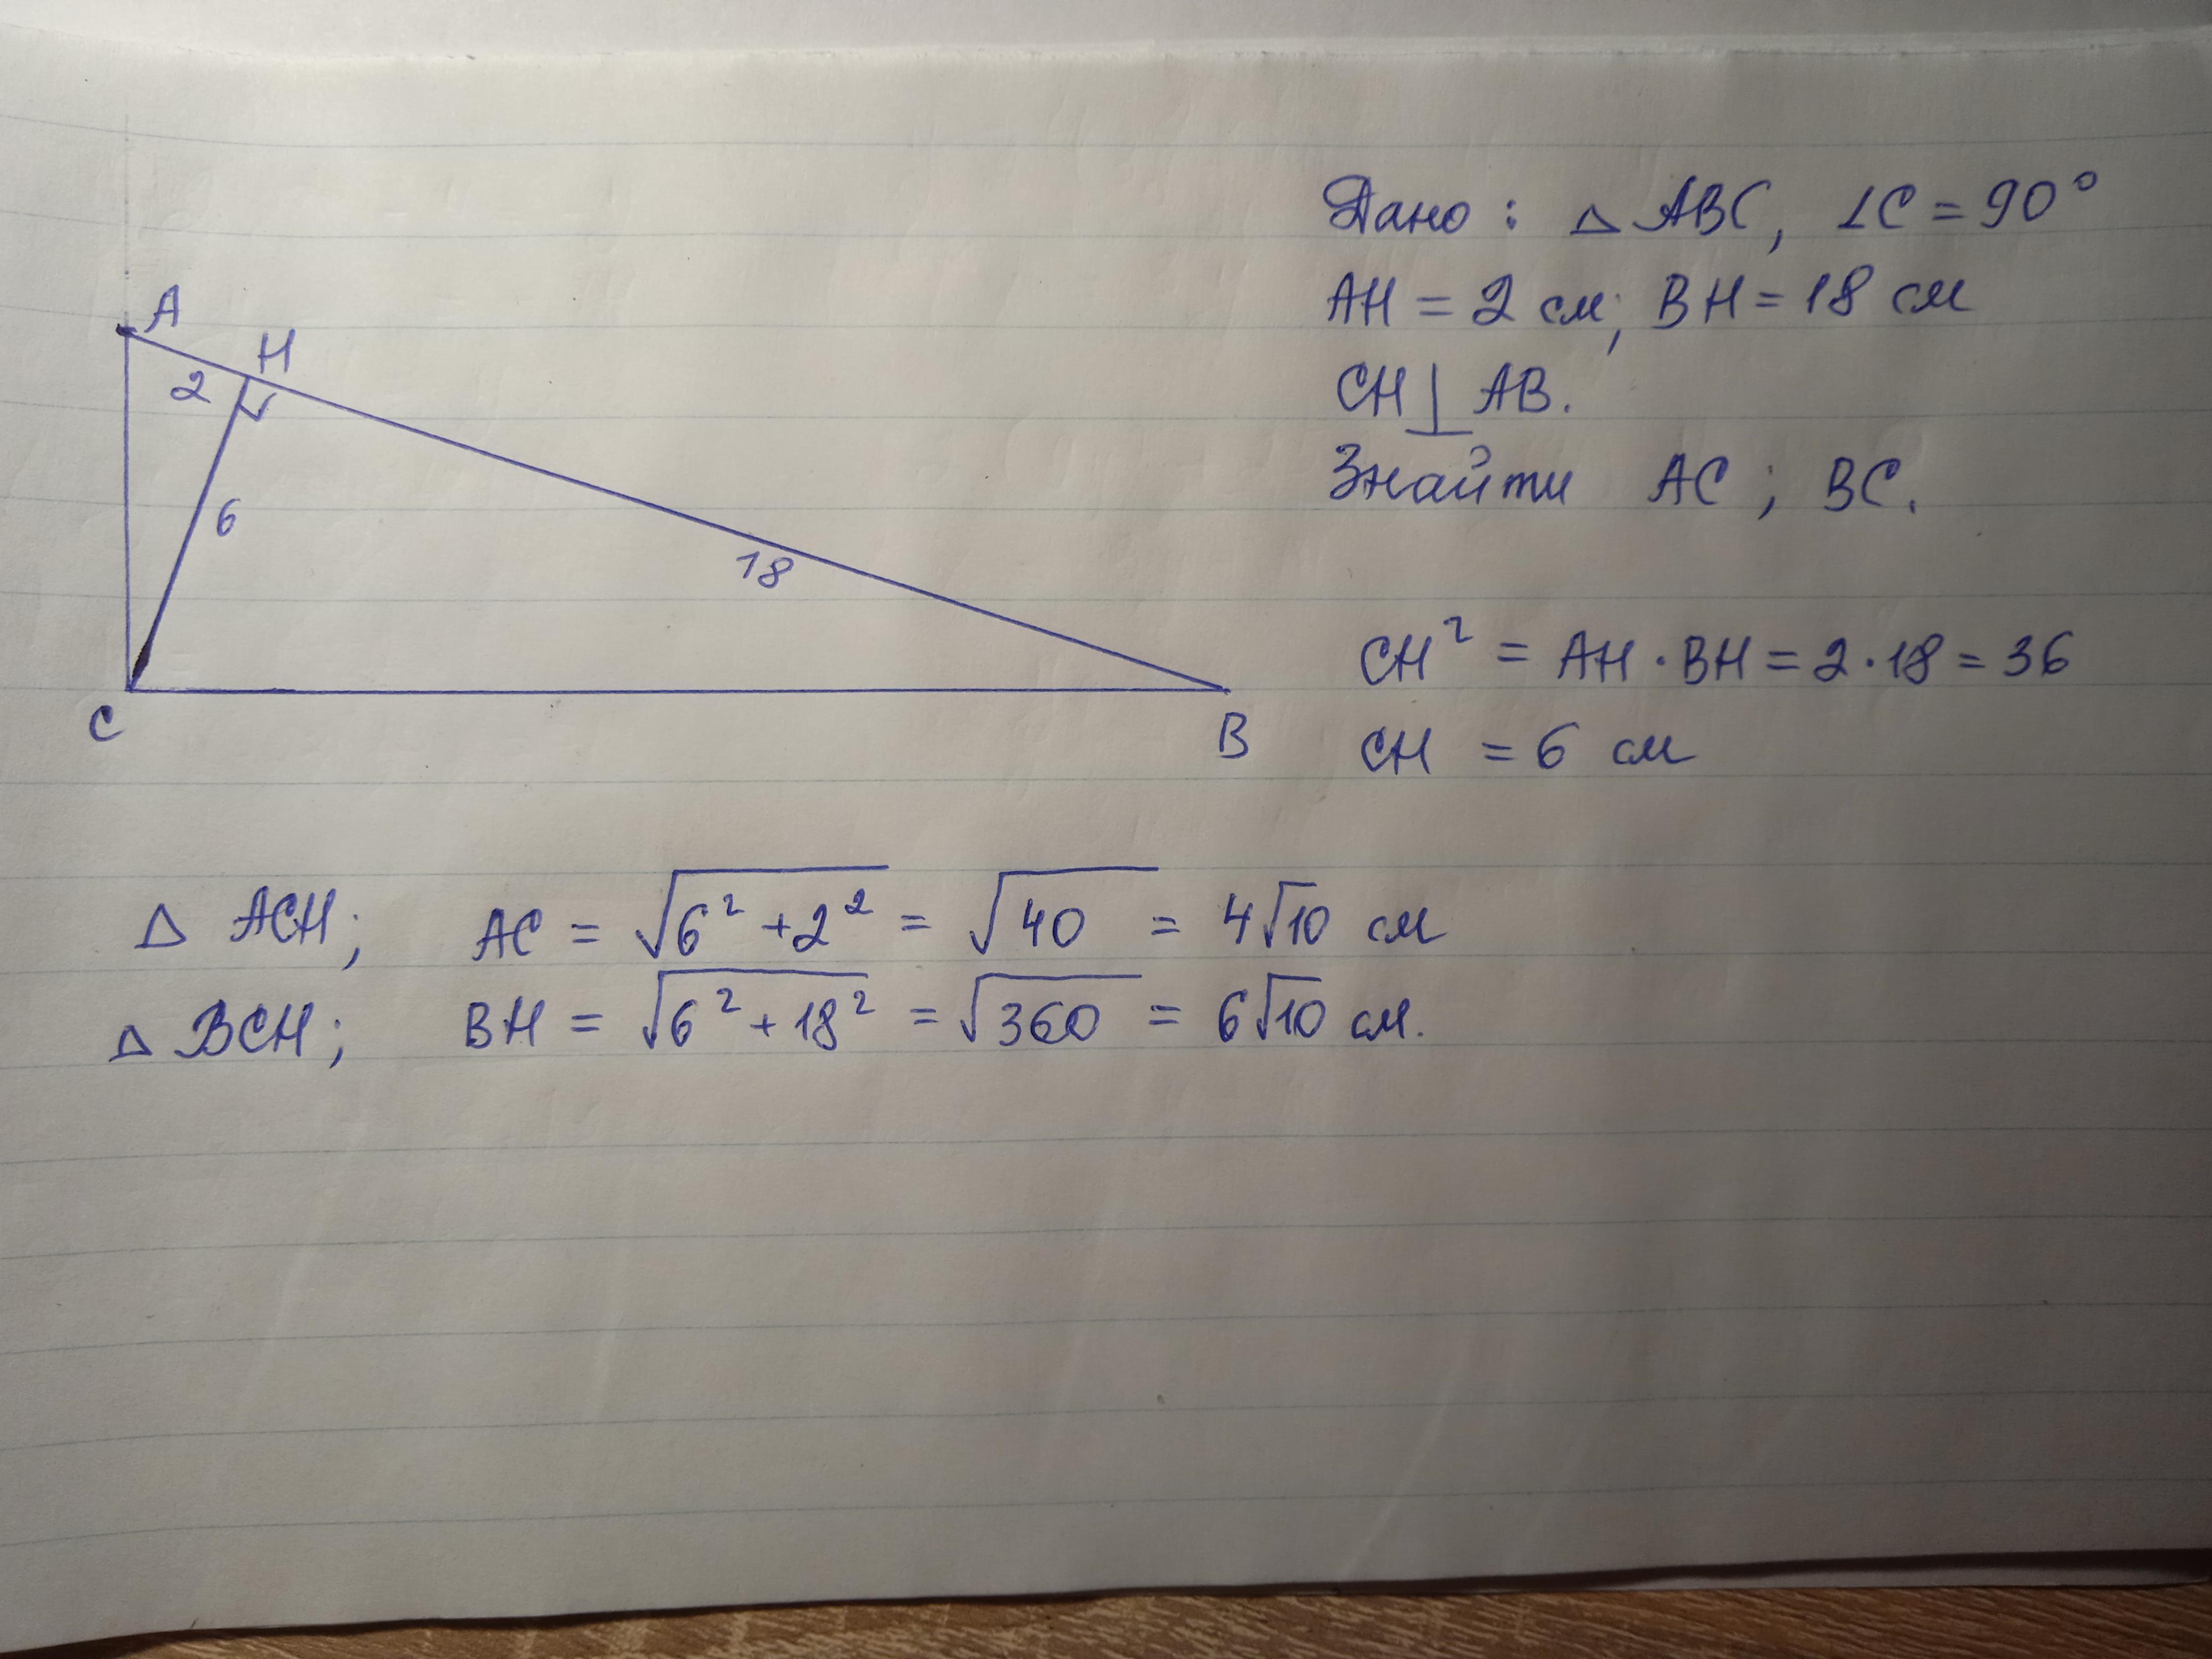 Дано: △ ABC, ∠C = 90°
AH = 2 см; BH = 18 см
CH ⊥ AB.
Знайти AC; BC.
A
H
2
6
18
C
B
CH² = AH · BH = 2 · 18 = 36
CH = 6 см
△ ACH; AC = √(6² + 2²) = √40 = 4√10 см
△ BCH; BH = √(6² + 18²) = √360 = 6√10 см.